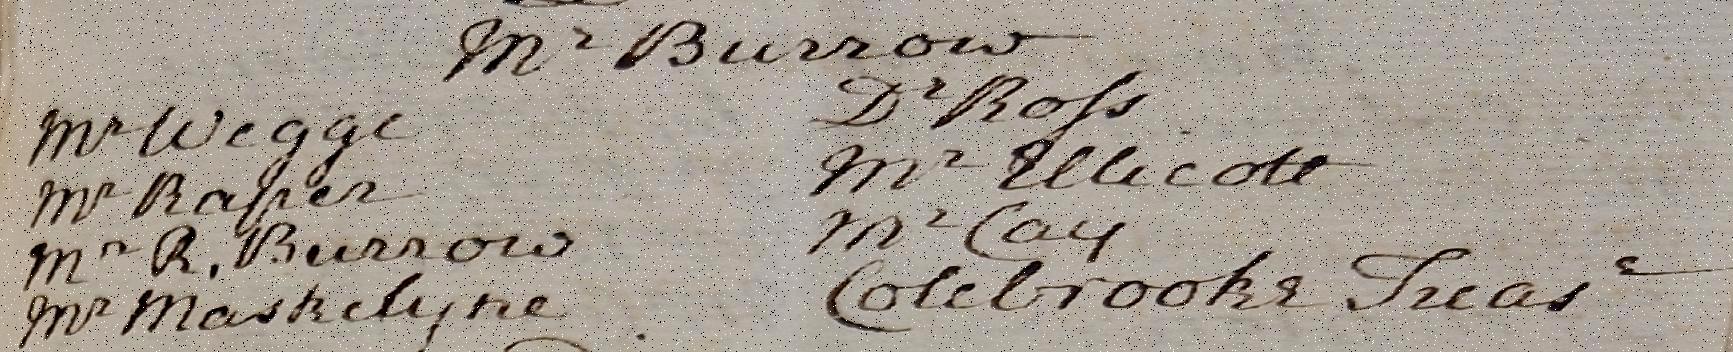 Mr Burrow
Mr Wegge
Mr Raper
Mr R. Burrow
Mr Maskelyne
Dr Ross
Mr Ellicott
Mr Cay
Colebrooke Treasr